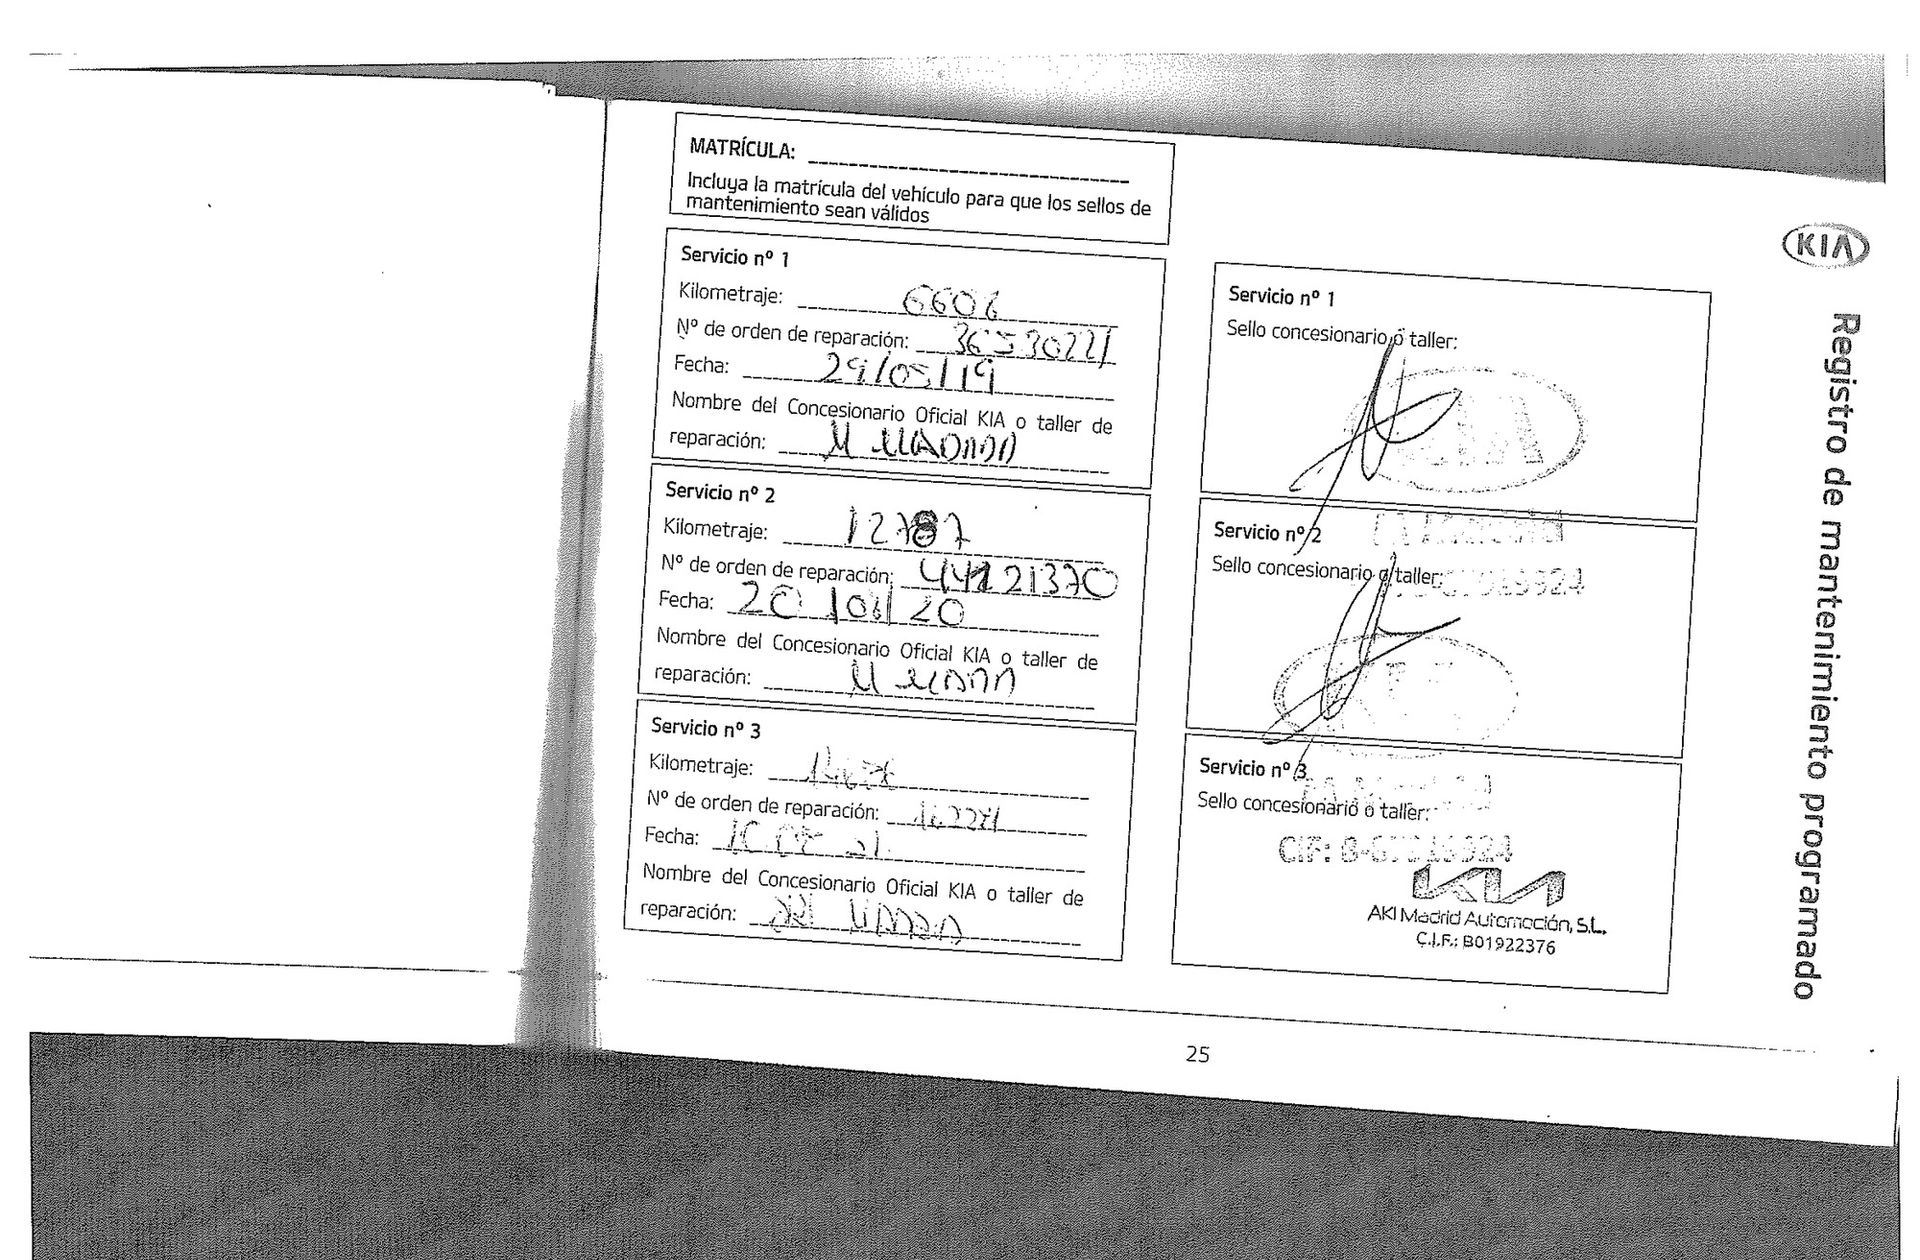 MATRÍCULA:
Incluya la matrícula del vehículo para que los sellos de
mantenimiento sean válidos
Servicio nº 1
Kilometraje: 6606
Nº de orden de reparación: 36530221
Fecha: 29/05/19
Nombre del Concesionario Oficial KIA o taller de
reparación: M
Servicio nº 2
Kilometraje: 12787
Nº de orden de reparación: 44121370
Fecha: 20
Nombre del Concesionario Oficial KIA o taller de
reparación: M
Servicio nº 3
Kilometraje:
Nº de orden de reparación:
Fecha:
Nombre del Concesionario Oficial KIA o taller de
reparación:
Servicio nº 1
Sello concesionario o taller:
KIA
Servicio nº 2
Sello concesionario o taller:
Servicio nº 3
Sello concesionario o taller:
CIF:
KIA
AKI Madrid Automoción, S.L.
C.I.F.: B01922376
KIA
Registro de mantenimiento programado
25